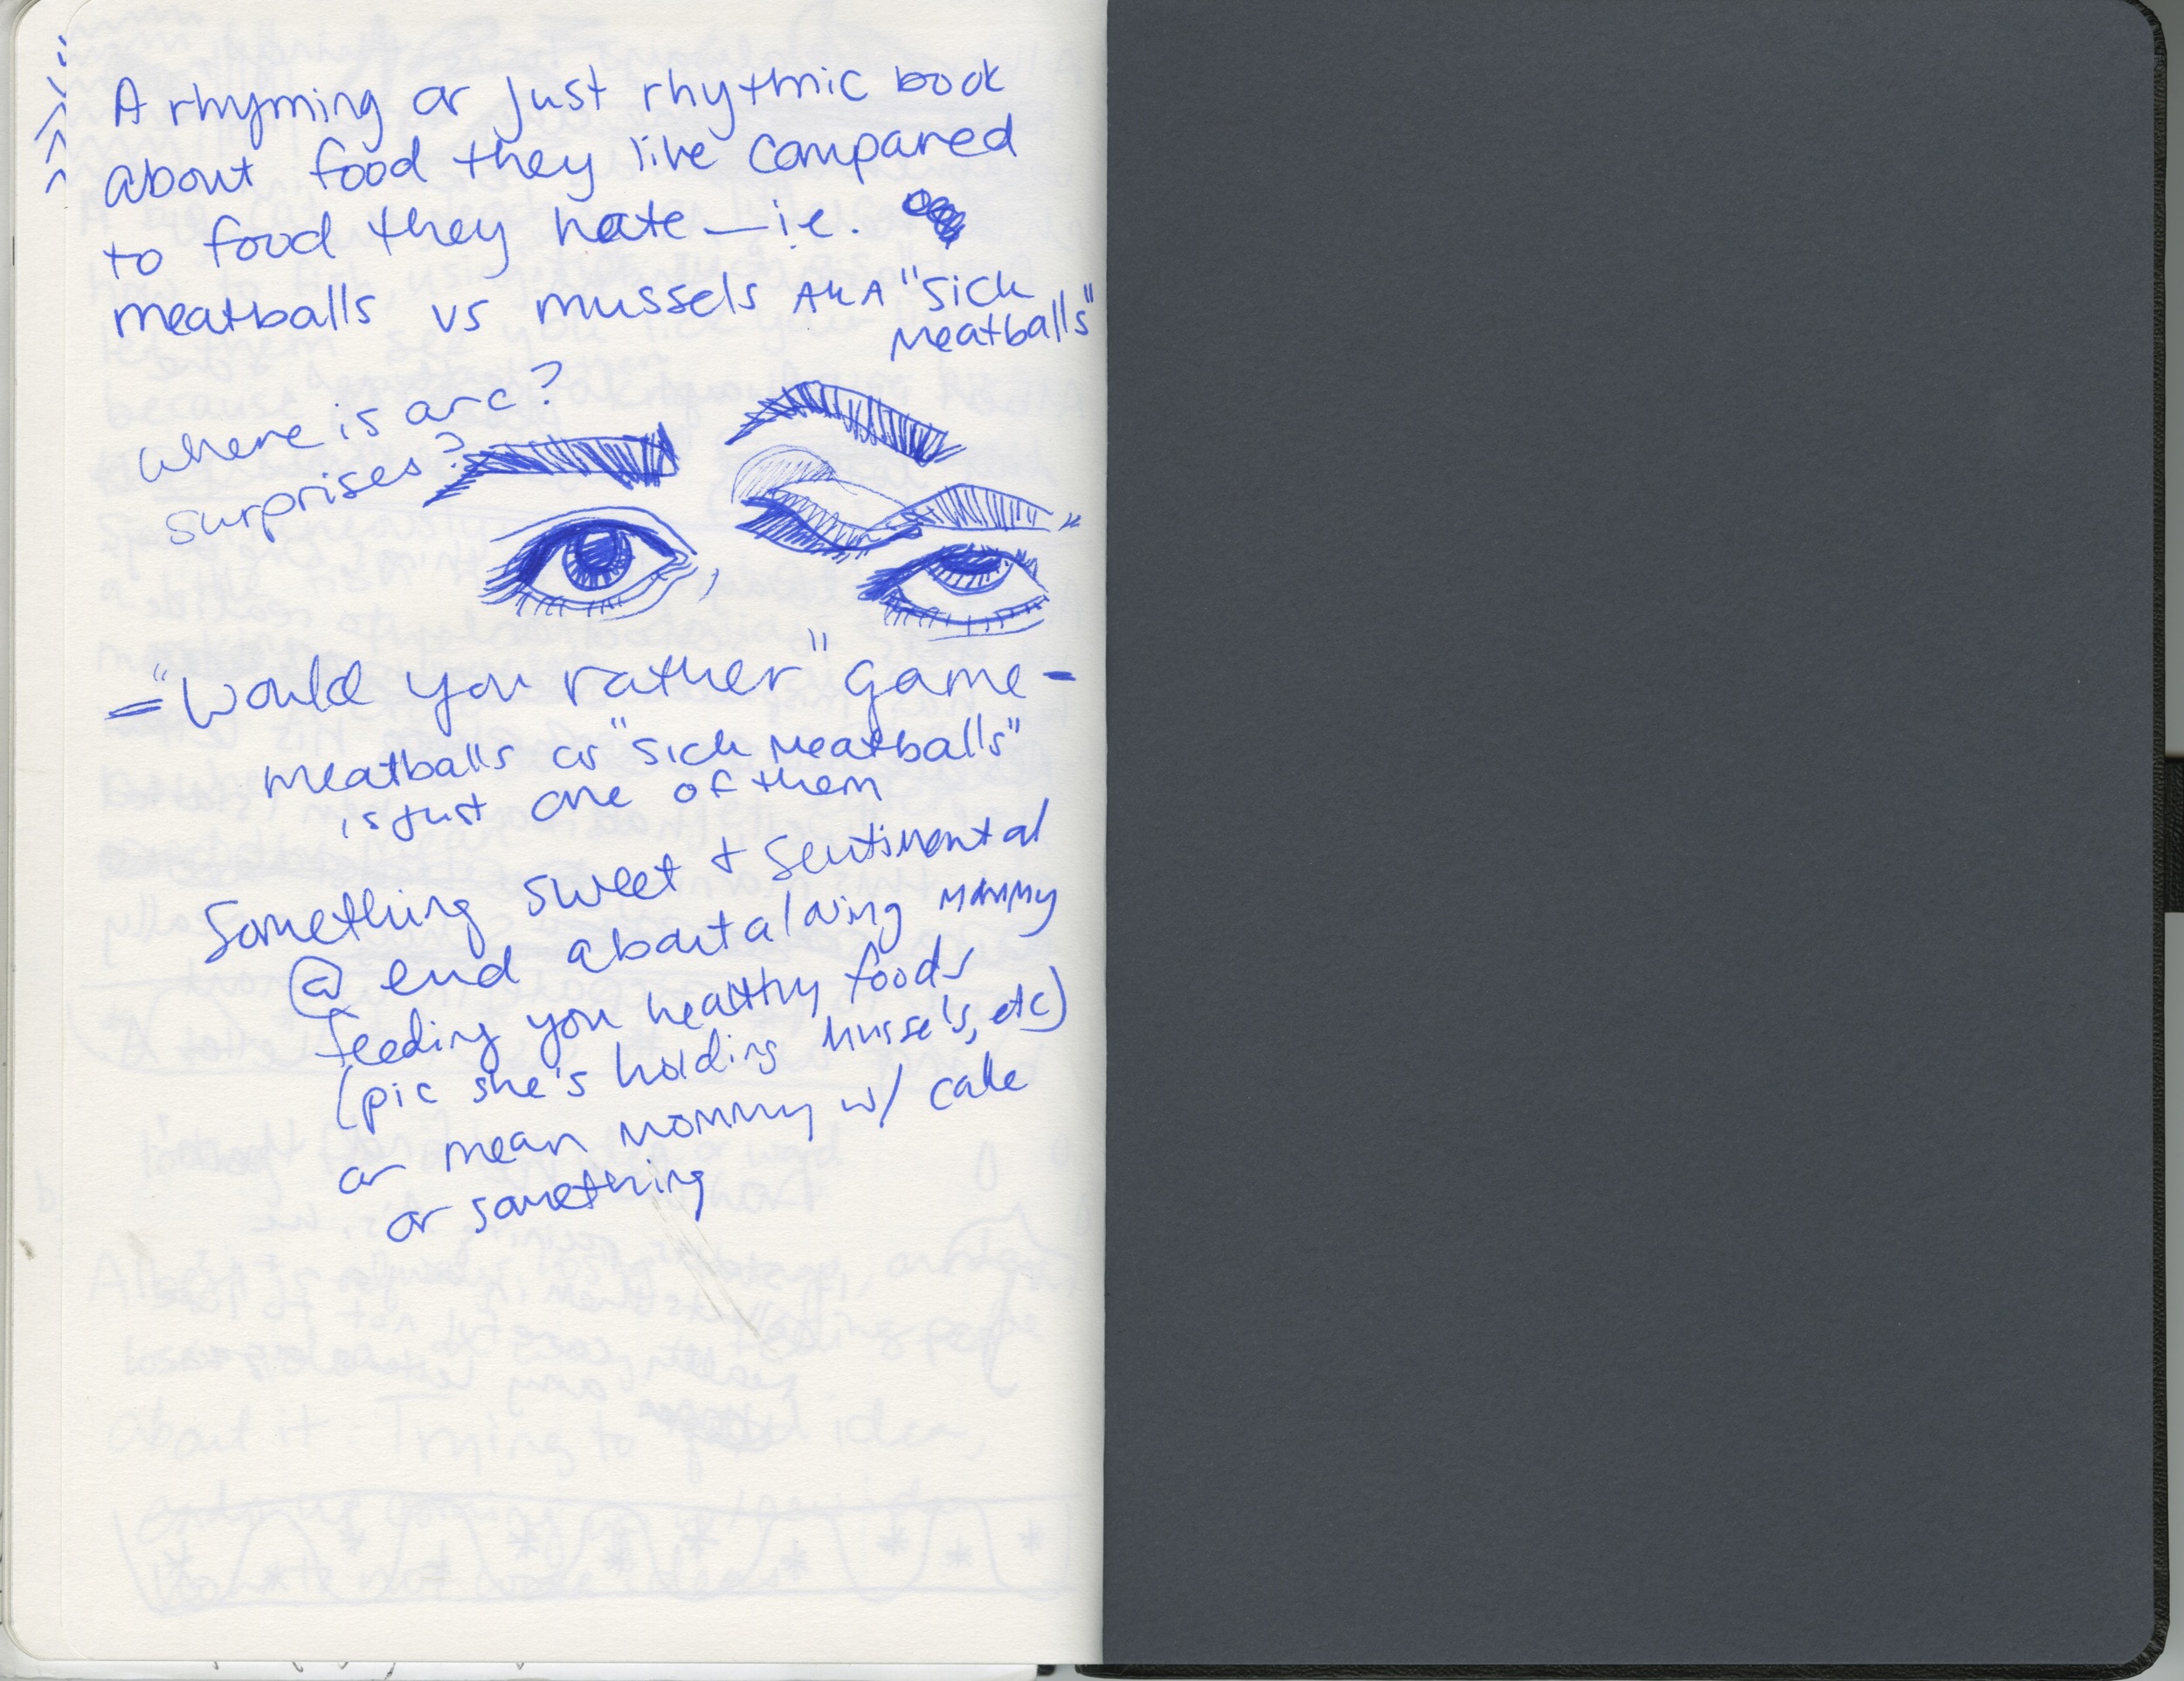 A rhyming or just rhythmic book
about food they like compared
to food they hate — ie.
meatballs vs mussels AKA "sick
meatballs"
where is arc?
surprises?
= "Would you rather" game -
meatballs or "sick meatballs"
is just one of them
Something sweet + sentimental
@ end about a loving mommy
feeding you healthy foods
(pic she's holding mussels, etc)
or mean mommy w/ cake
or something